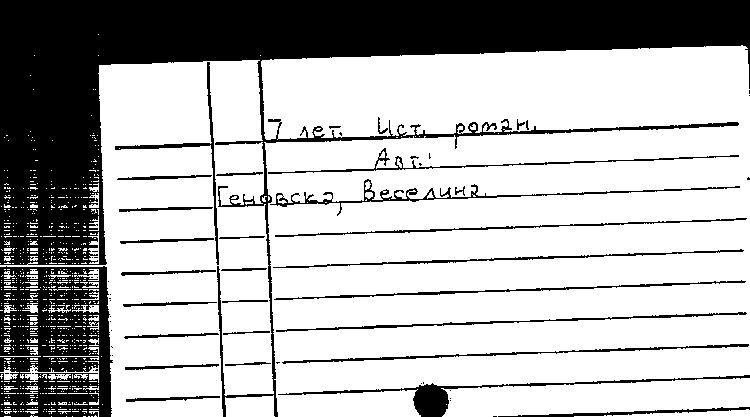 7 лет. Ист. роман.
Авт.:
Геновска, Веселина.